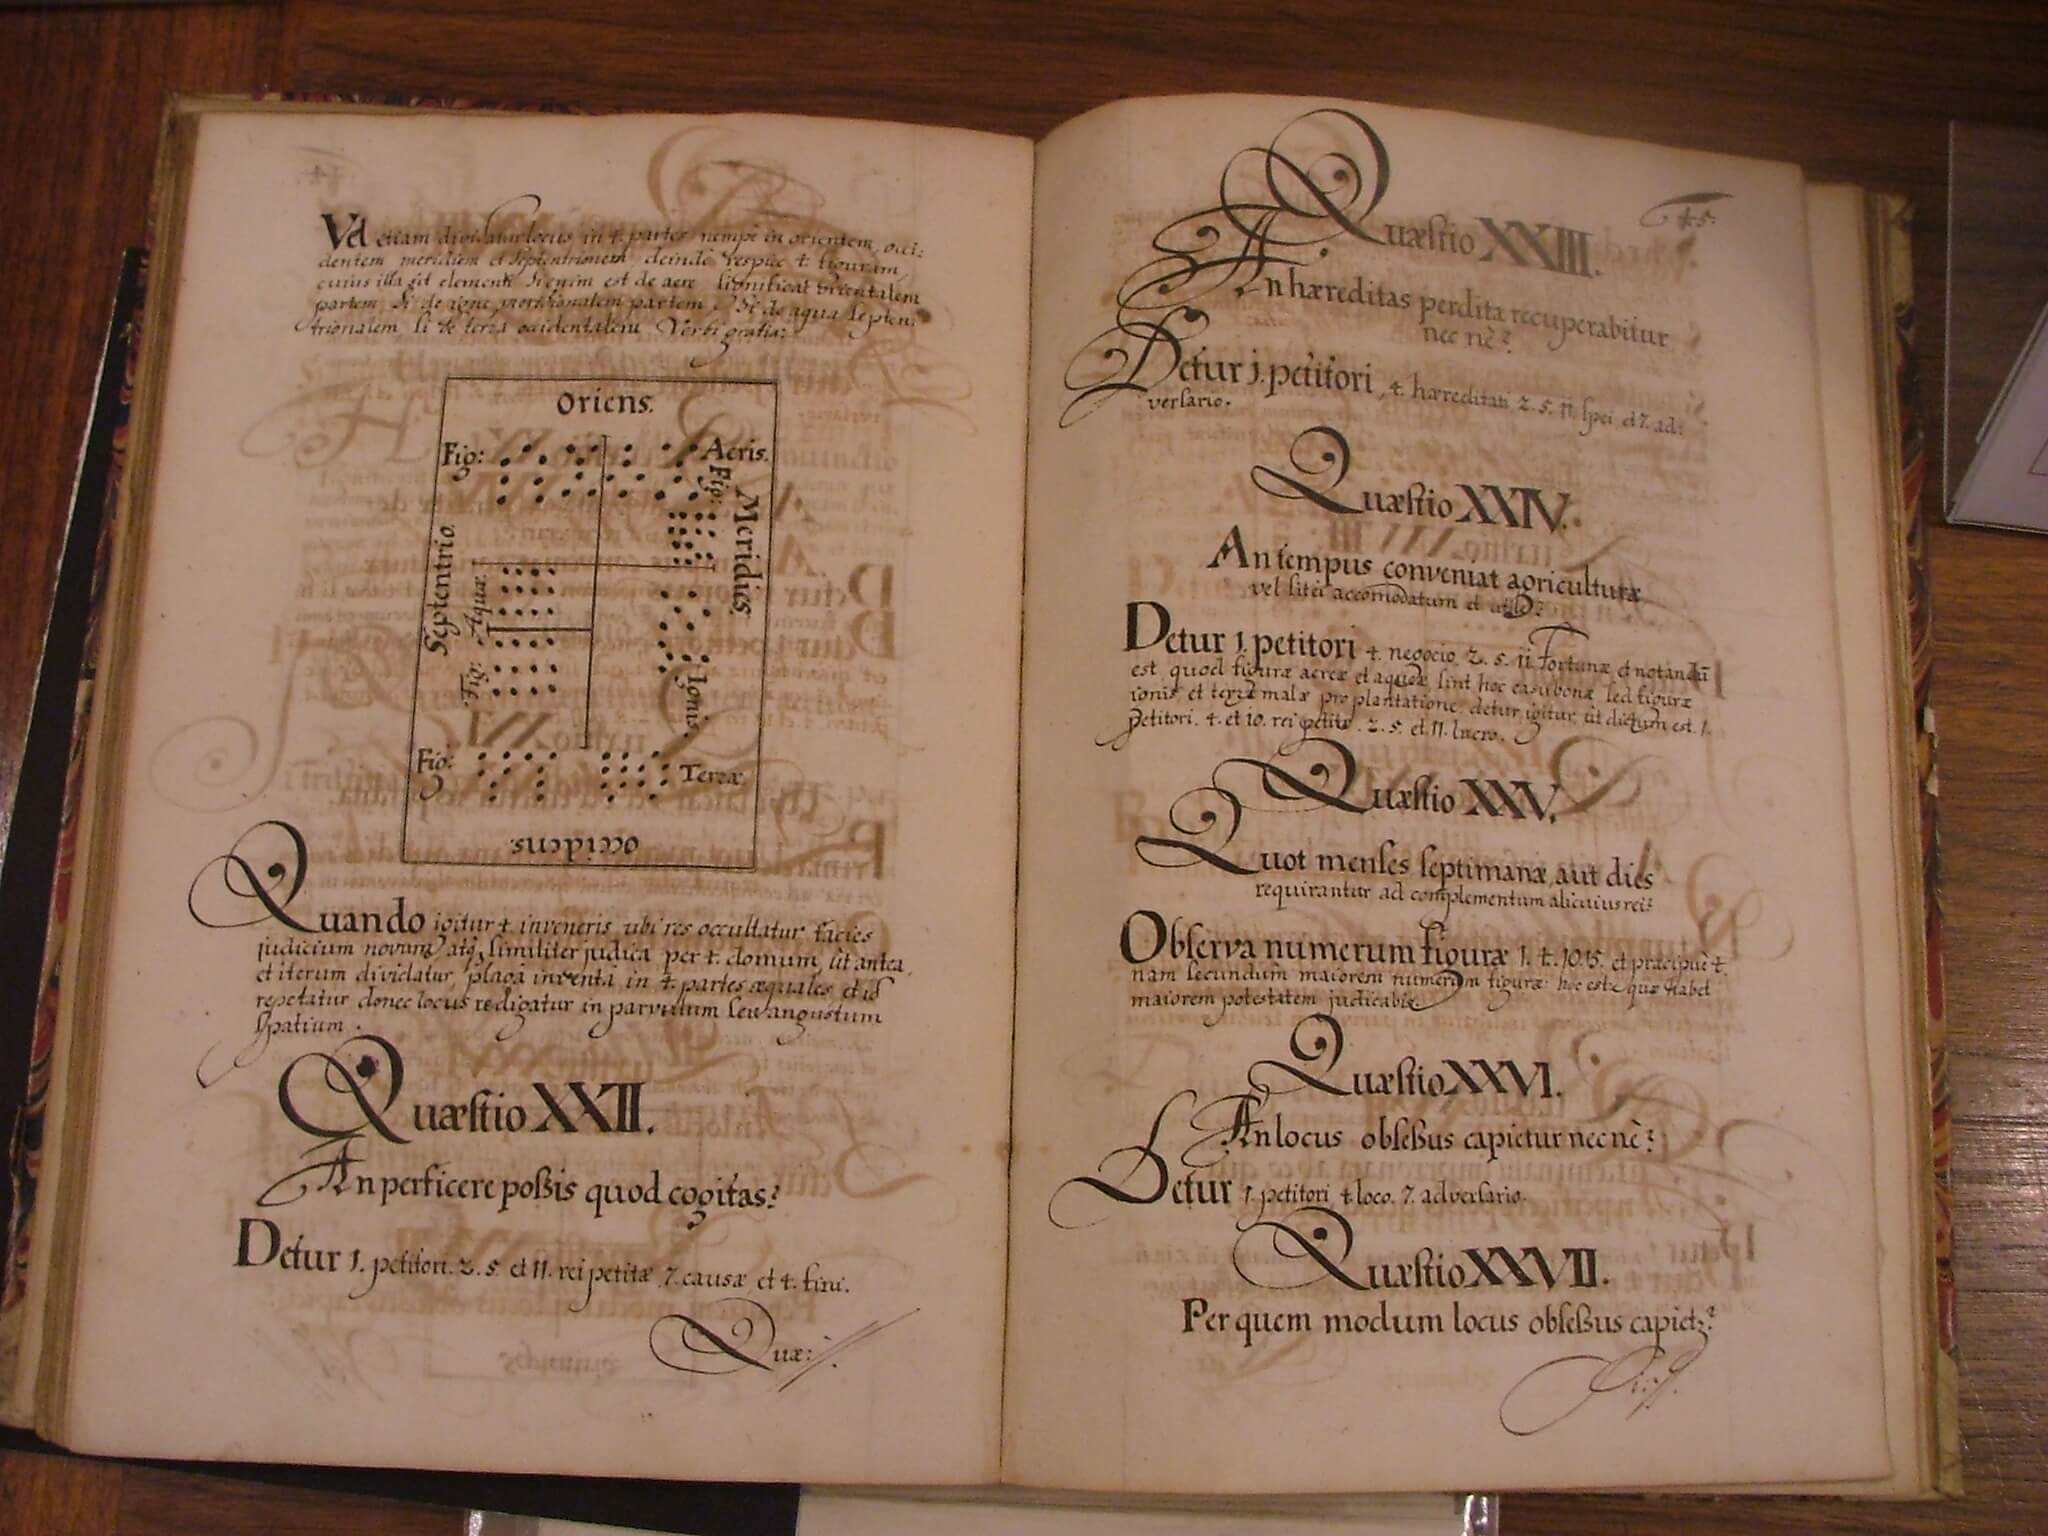 Vel etiam dividatur locus in 4. partes nempe in orientem, occi:
dentem meridiem et septentrionem deinde respice 4. figuram
cuius illa sit elementi si enim est de aere significat orientalem
partem, si de igne meridionalem partem, si de aqua septen:
trionalem si de terra occidentalem Verbi gratia:
Oriens.
Fig: Aeris.
Fig:
Meridies
Ignis.
Septentrio
Fig: Aquæ
Fig: Terræ
occidens
Quando igitur 4. inveneris ubi res occultatur facies
judicium novum, atq, similiter judica per 4. domum, ut antea,
et iterum dividatur, plaga inventa in 4 partes æquales, et id
repetatur donec locus redigatur in parvulum seu angustum
spatium.
Quæstio XXII.
An perficere poßis quod cogitas?
Detur 1. petitori. 2. 5. et 11. rei petitæ, 7. causæ, et 4. fini.
Quæ:
45.
Quæstio XXIII.
An hæreditas perdita recuperabitur
nec nè?
Detur 1. petitori, 4. hæreditati, 2. 5. 11. spei, et 7. ad:
versario.
Quæstio XXIV.
An tempus conveniat agriculturæ
vel sitei accomodatum et utile?
Detur 1. petitori 4. negocio, 2. 5. 11. Fortunæ, et notandū
est, quod figuræ aereæ et aqueæ, sint hoc casu bonæ, sed figuræ
ignis, et terræ malæ pro plantatione, detur igitur, ut dictum est. 1.
petitori. 4. et 10. rei petitæ. 2. 5. et 11. lucro.
Quæstio XXV.
Quot menses septimanæ, aut dies
requirantur ad complementum alicuius rei?
Observa numerum figuræ 1. 4. 10. 15. et præcipuè 4.
nam secundum maiorem numerum figuræ: hoc est, quæ habet
maiorem potestatem judicabis.
Quæstio XXVI.
An locus obseßus capietur nec nè?
Detur 1. petitori 4. loco. 7. adversario.
Quæstio XXVII.
Per quem modum locus obseßus capietz?